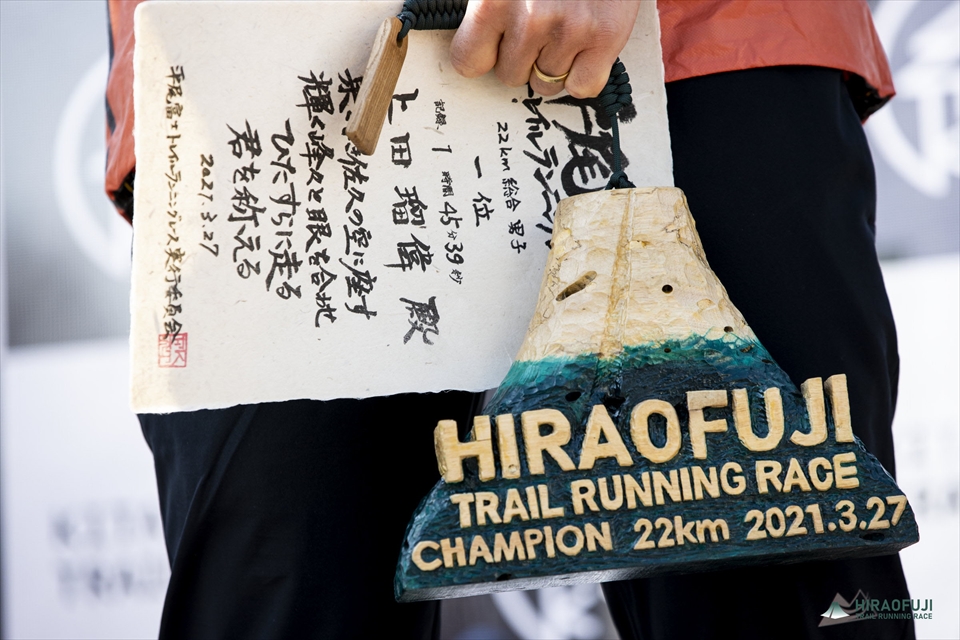 尾
イルランニン
22km 総合 男子
一位
記録 1時間45分39秒
上田 瑠偉 殿
佐久の空に座す
輝く峰々と眼を合地
ひたすらに走る
君を称える
2021.3.27
平尾富士トレイルランニングレース実行委員会
HIRAOFUJI
TRAIL RUNNING RACE
CHAMPION 22km 2021.3.27
HIRAOFUJI
TRAIL RUNNING RACE